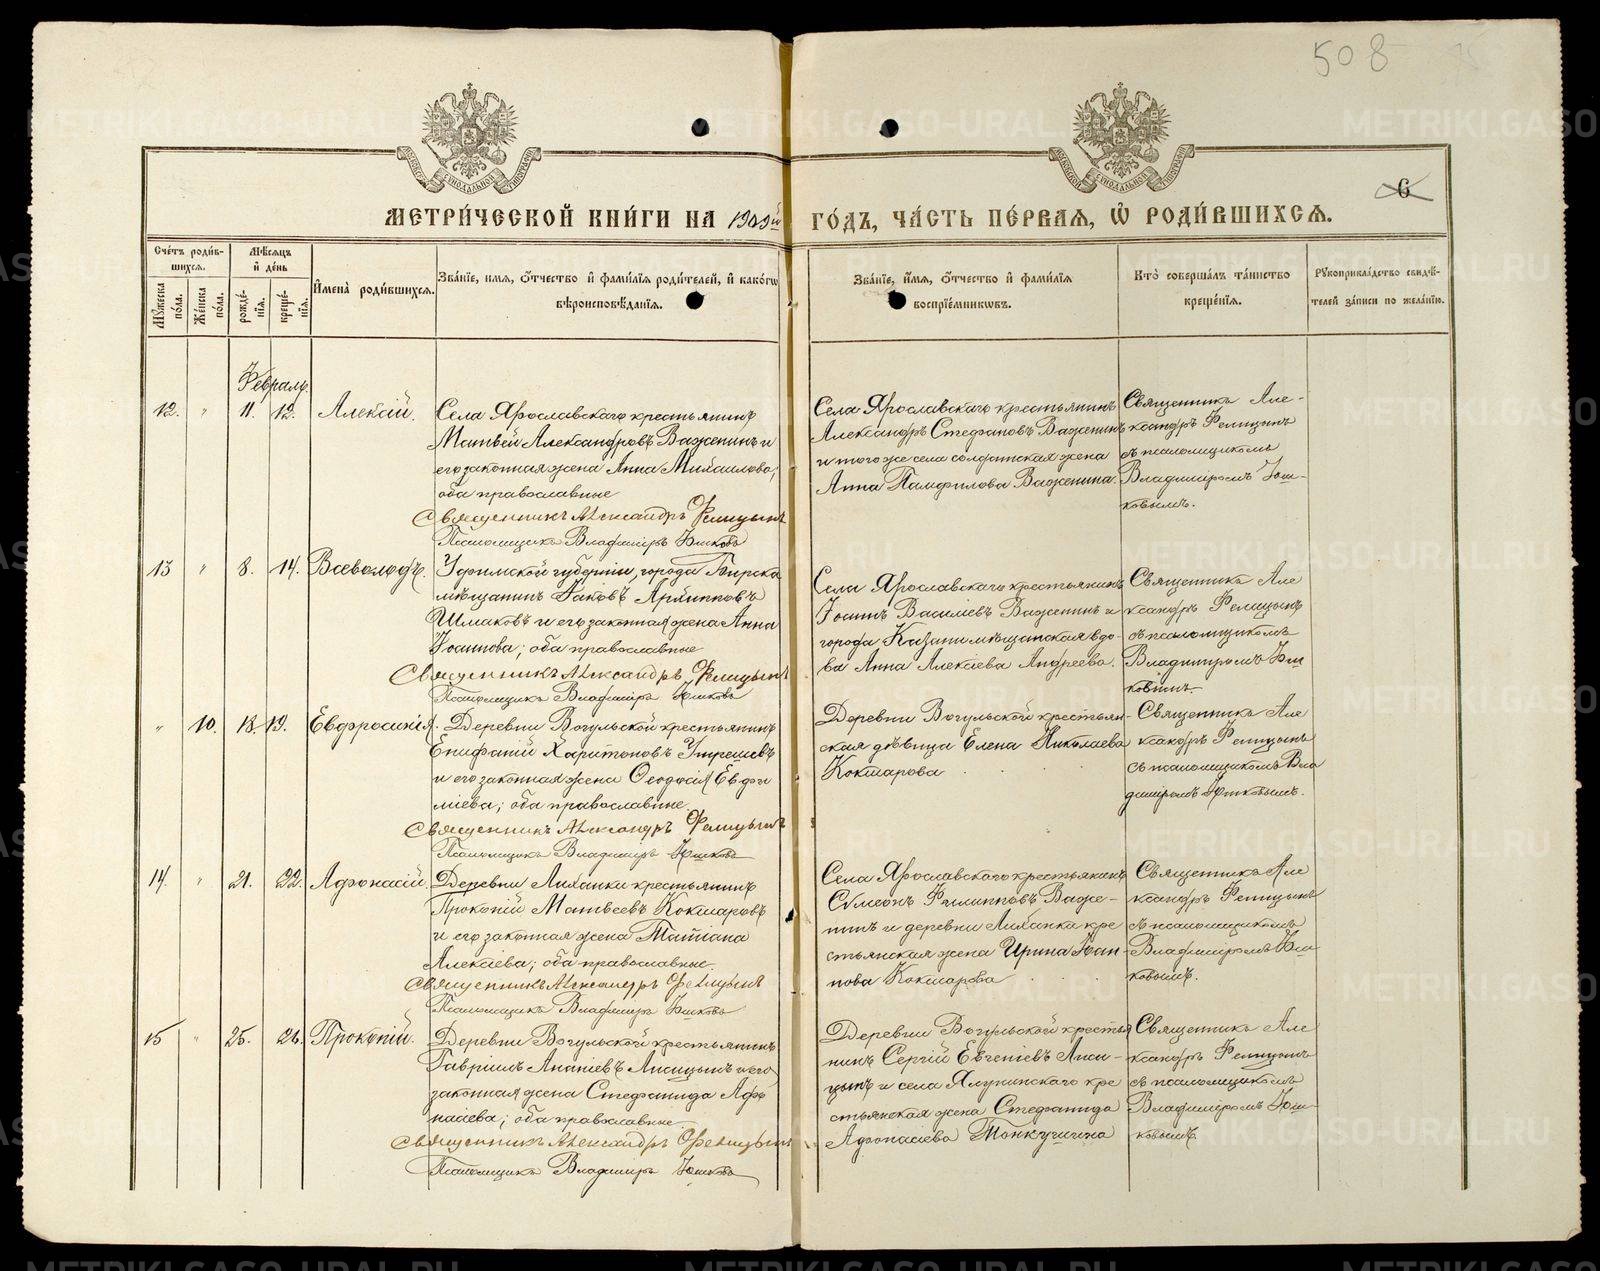 508
6
МЕТРИ́ЧЕСКОЙ КНИ́ГИ НА 1909й ГО́ДЪ, ЧА́СТЬ ПЕ́РВАЯ, Ѡ РОДИ́ВШИХСЯ.
Сче́тъ роди́в-
шихся.
Мѣсяцъ
и де́нь
Му́жеска по́ла.
Же́нска по́ла.
рожде́-
нія.
креще́-
нія.
Имена̀ роди́вшихся.
Зва́ніе, имя, о́тчество и фами́лія роди́телей, и како́гѡ
вѣроисповѣ́данія.
Зва́ніе, и́мя, о́тчество и фами́лія
воспріе́мниковъ.
Кто̀ соверша́лъ та́инство
креще́нія.
Рукоприкла́дство свидѣ́-
телей за́писи по жела́нію.
Февраль
12. " 11. 12. Алексій.
Села Ярославскаго крестьянинъ
Матвей Александровъ Важенинъ и
его законная жена Анна Михаилова,
оба православные
Священникъ Александръ Фелицынъ
Псаломщикъ Владиміръ Юшковъ
Села Ярославскаго крестьянинъ
Александръ Стефановъ Важенинъ
и того же села солдатская жена
Анна Памфилова Важенина.
Священникъ Але-
ксандръ Фелицынъ
съ псаломщикомъ
Владиміромъ Юш-
ковымъ.
13 " 8. 14. Всеволодъ.
Уфимской губерніи, города Бирска
мѣщанинъ Іаковъ Архипповъ
Шмаковъ и его законная жена Анна
Іоаннова; оба православные
Священникъ Александръ Фелицынъ
Псаломщикъ Владиміръ Юшковъ
Села Ярославскаго крестьянинъ
Іоаннъ Василіевъ Важенинъ и
города Казани мѣщанская вдо-
ва Анна Алексіева Андреева.
Священникъ Але
ксандръ Фелицынъ
съ псаломщикомъ
Владиміромъ Юш
ковымъ
" 10. 18. 19. Евфросинія.
Деревни Вогульской крестьянинъ
Епифаній Харитоновъ
и его законная жена Ѳеодосія Евдоки
міева; оба православные
Священникъ Александръ Фелицынъ
Псаломщикъ Владиміръ Юшковъ
Деревни Вогульской крестьян-
ская дѣвица Елена Николаева
Кокшарова
Священникъ Але
ксандръ Фелицынъ
съ псаломщикомъ Вла
диміромъ Юшковымъ.
14. " 21. 22. Афонасій.
Деревни Лиханки крестьянинъ
Прокопій Матвеевъ Кокшаровъ
и его законная жена Татіана
Алексіева; оба православные.
Священникъ Александръ Фелицынъ
Псаломщикъ Владиміръ Юшковъ
Села Ярославскаго крестьянинъ
Сѵмеонъ Филипповъ Важе-
нинъ и деревни Лиханки кре
стьянская жена Ирина Іоан-
нова Кокшарова
Священникъ Але
ксандръ Фелицынъ
съ псаломщикомъ
Владиміромъ Юш-
ковымъ.
15 " 25. 26. Прокопій.
Деревни Вогульской крестьянинъ
Гавріилъ Ананіевъ Лисицынъ и его
законная жена Стефанида Афо
насіева; оба православные.
Священникъ Александръ Фелицынъ
Псаломщикъ Владиміръ Юшковъ
Деревни Вогульской крестья
нинъ Сергій Евгеніевъ Лиси-
цынъ и села Ялунинскаго кре
стьянская жена Стефанида
Афонасіева Тонкушина
Священникъ Але
ксандръ Фелицынъ
съ псаломщикомъ
Владиміромъ Юш-
ковымъ.
METRIKI.GASO-URAL.RU